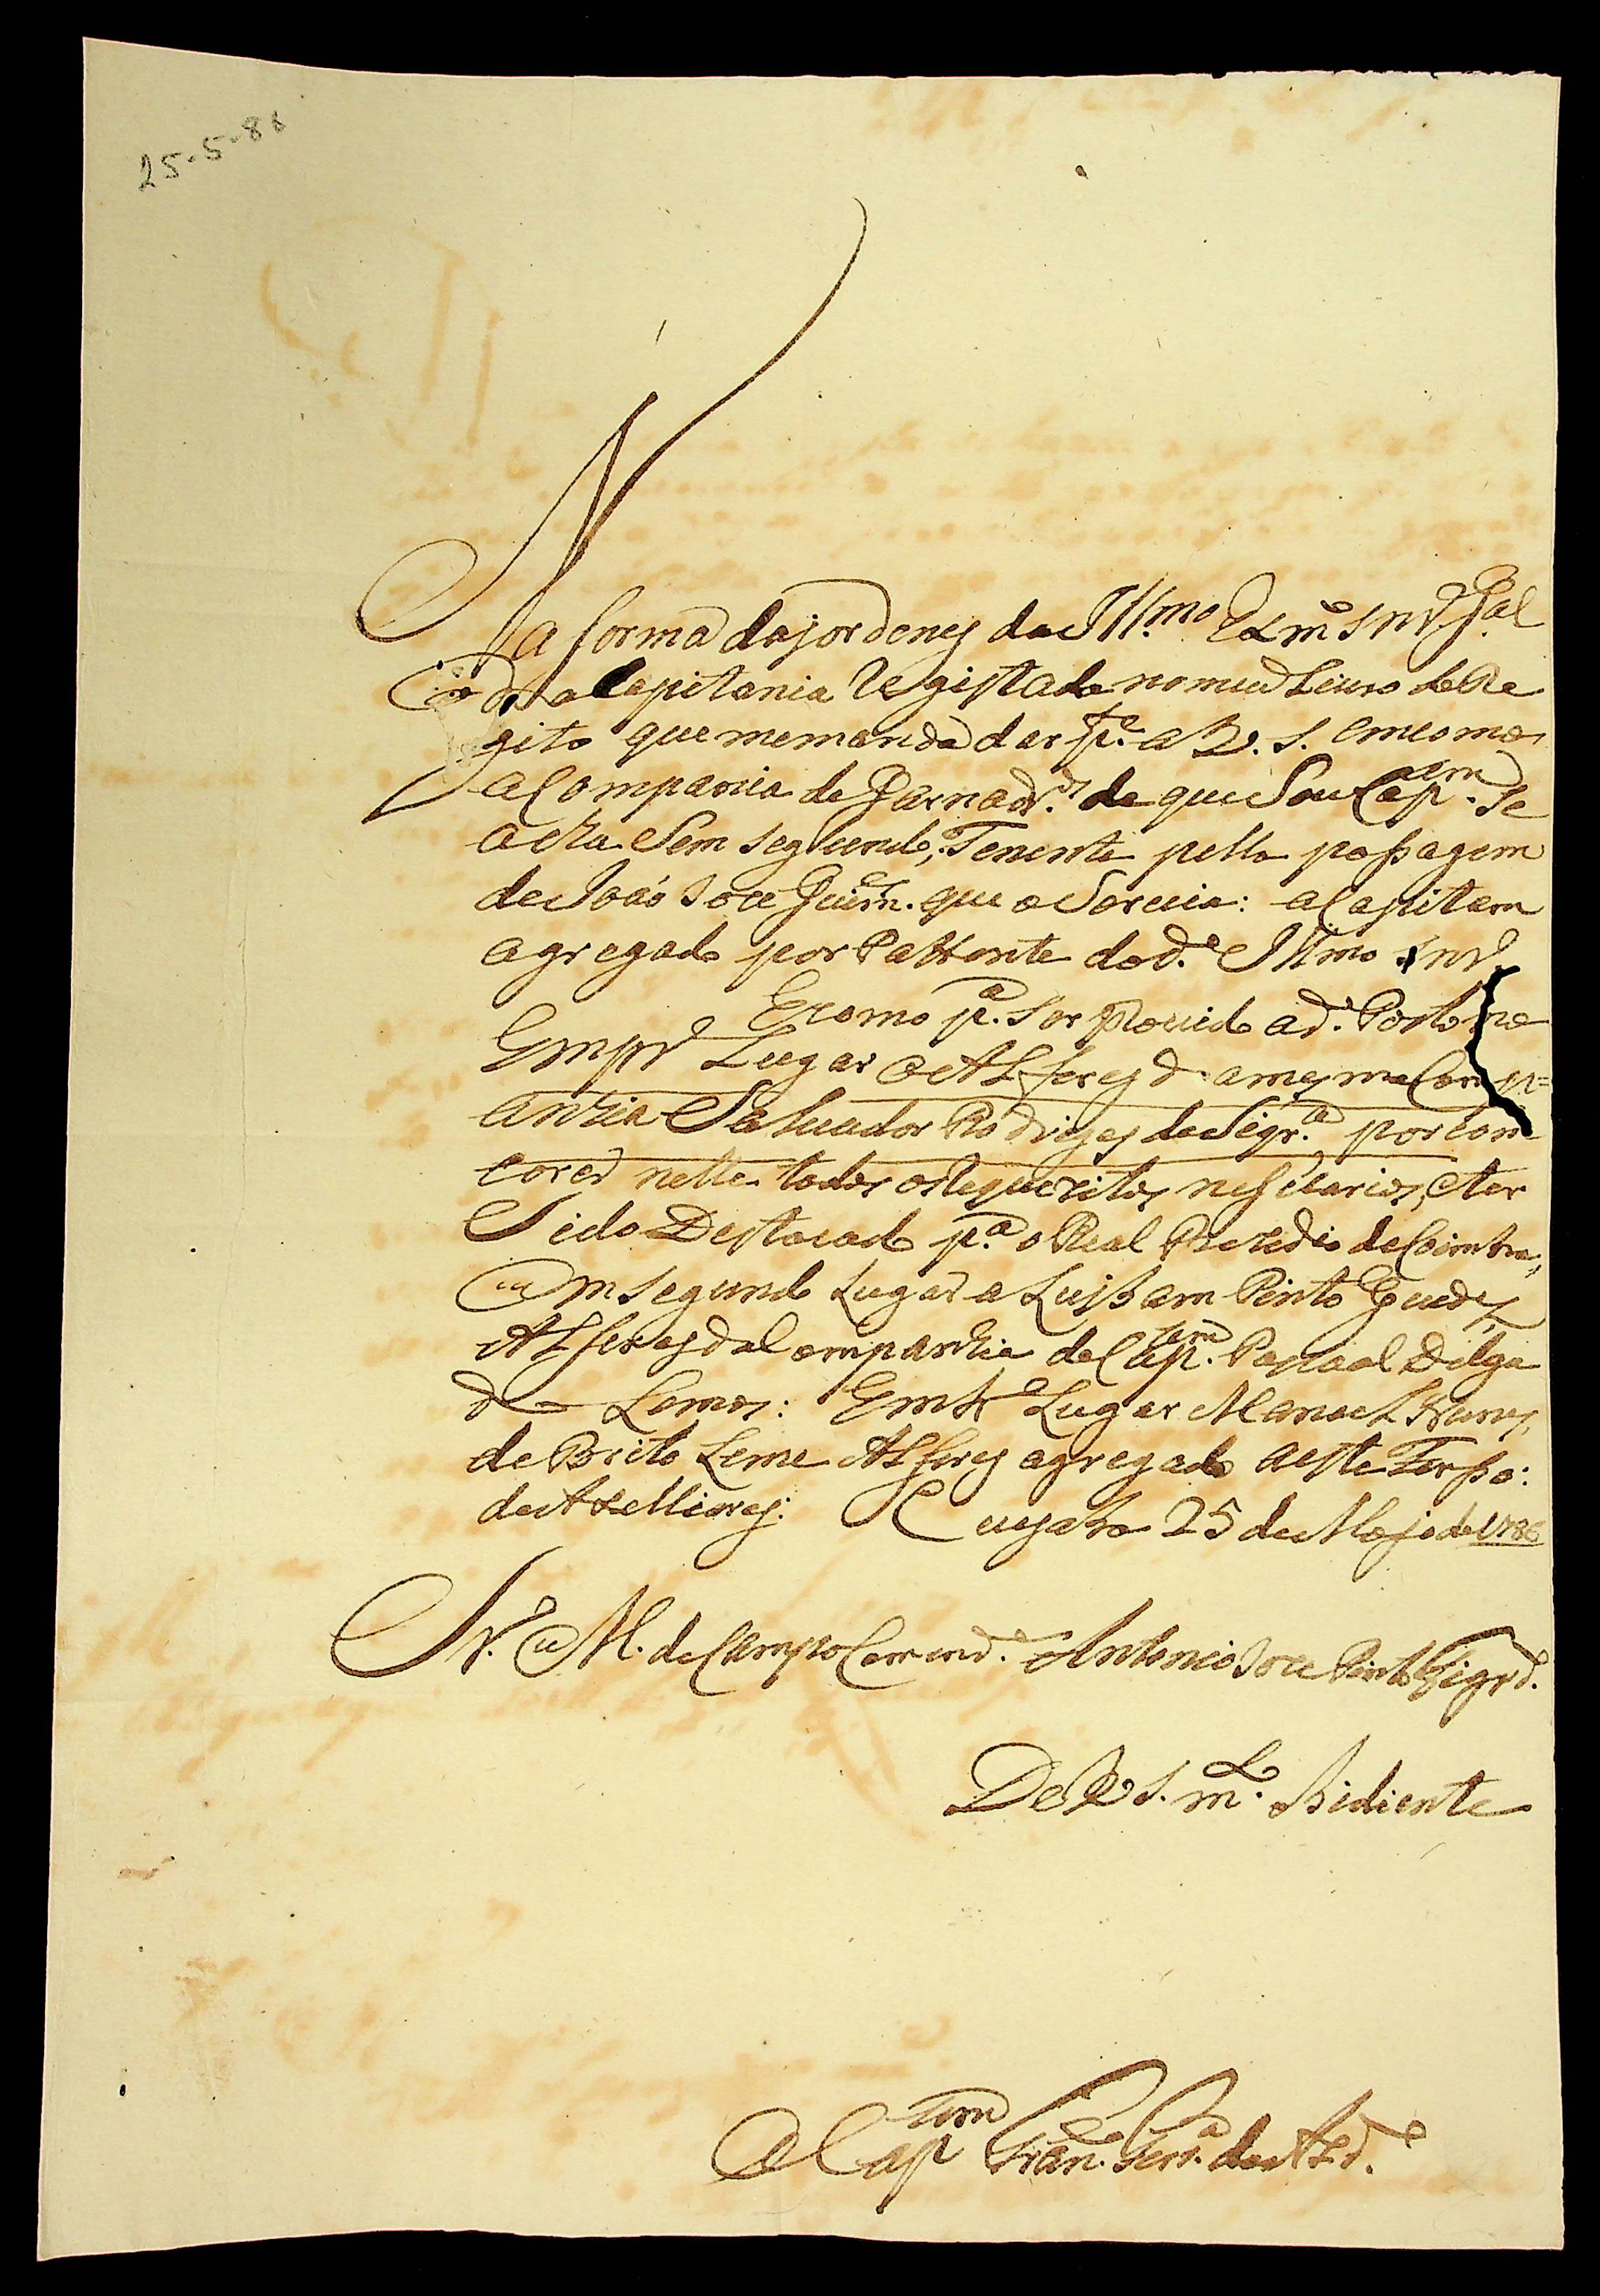 25-5-86
Na forma das ordenes do Illmo Exmº Snr Gal
da Capitania Registada no meu Livro de Re
gito que me manda dar p.te a V. S. em como
a Compania de Garnadr.os de que Sou Cap.am Se
acha Sem segundo Tenente pella passagem
de Joaó Joce Guimes. que o Servia: a Capitam
agregado por Pattente do d.º Illmo Snr
E como p.a Ser provido a d.º Posto no
Em pr.º Lugar o Alferes da mesma Comp=
anhia Salvador Rodriges de Siqr.a por com
corer nelle todos os Requezitos nessecarios, e ter
Sido Destacado p.a o Real Prezidio de Coimbra,
Em segundo Lugar a Luis Bam Pinto Guedes
Alferes da Companhia do Cap.tam Pascoal Delga
do Lemos: Em tr.º Lugar Manoel Nunes
de Brito Leme Alferes agregado a este Terso:
de Axelliares: Cuyaba 25 de Mayo de 1786
Sr. M. de Campo Comend.e Antonio Joce Pinto Figrd.
De V S. m.to Obidiente
O Cap.tam Fran.co Ferr.a de Azd.e